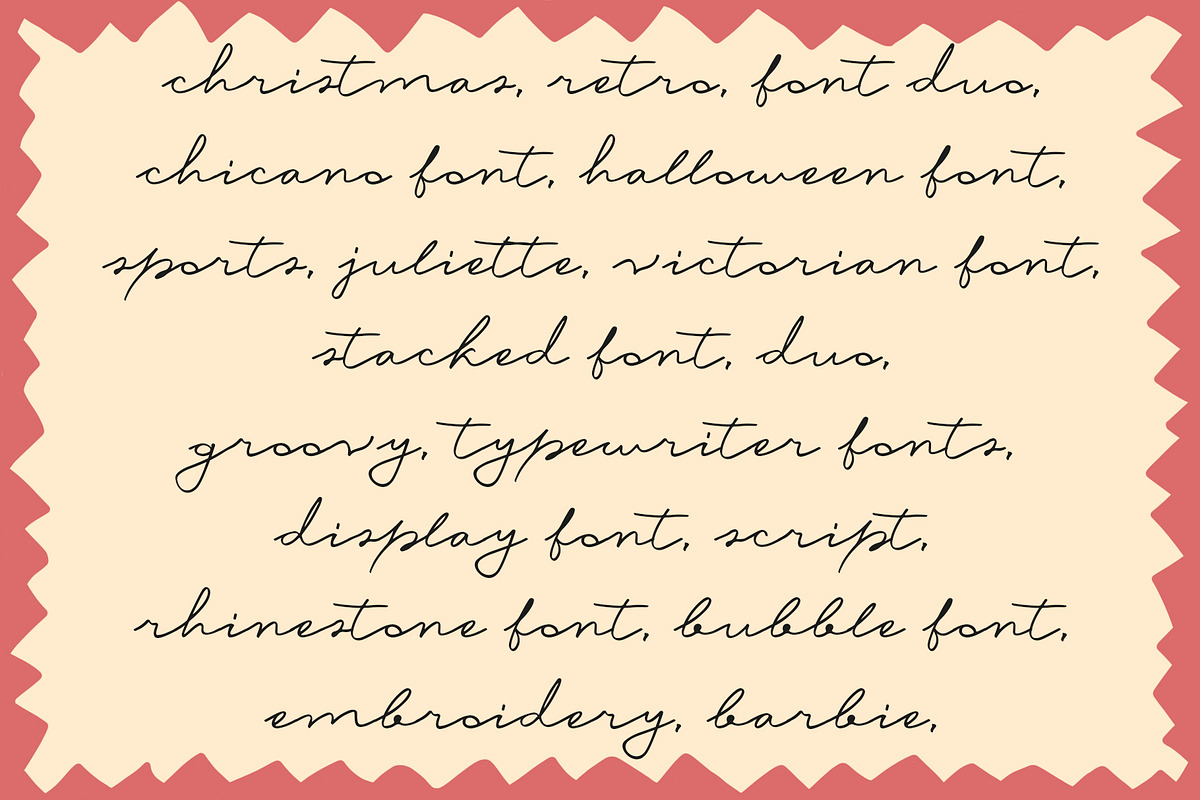 christmas, retro, font duo,
chicano font, halloween font,
sports, juliette, victorian font,
stacked font, duo,
groovy, typewriter fonts,
display font, script,
rhinestone font, bubble font,
embroidery, barbie,